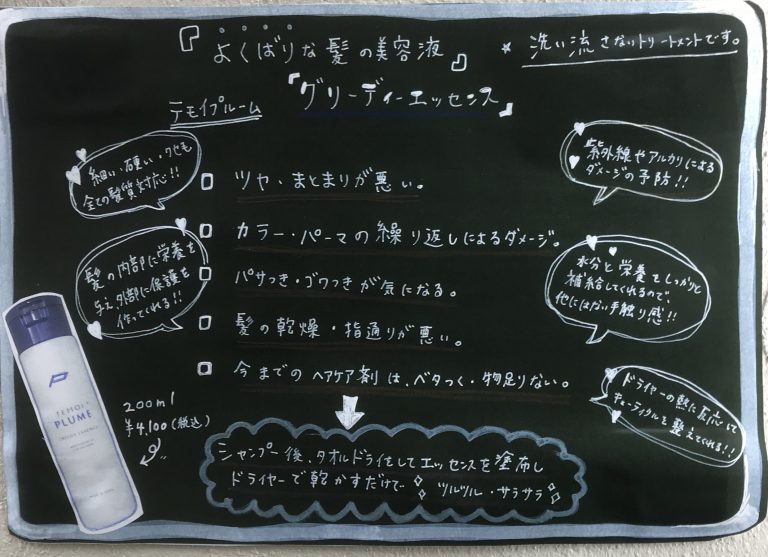 『よくばりな髪の美容液』
★ 洗い流さないトリートメントです。
テモイプルーム
『グリーディーエッセンス』
細い・硬い・クセも
全ての髪質対応!!
紫外線やアルカリによる
ダメージの予防!!
□ ツヤ、まとまりが悪い。
□ カラー・パーマの繰り返しによるダメージ。
□ パサつき・ゴワつきが気になる。
□ 髪の乾燥・指通りが悪い。
□ 今までのヘアケア剤は、ベタつく・物足りない。
髪の内部に栄養を
与え、外部に保護を
作ってくれる!!
水分と栄養をしっかりと
補給してくれるので、
他にはない手触り感!!
ドライヤーの熱に反応して
キューティクルを整えてくれる!!
P
TEMOI+
PLUME
200ml
¥4,100(税込)
シャンプー後、タオルドライをしてエッセンスを塗布し
ドライヤーで乾かすだけで ツルツル・サラサラ